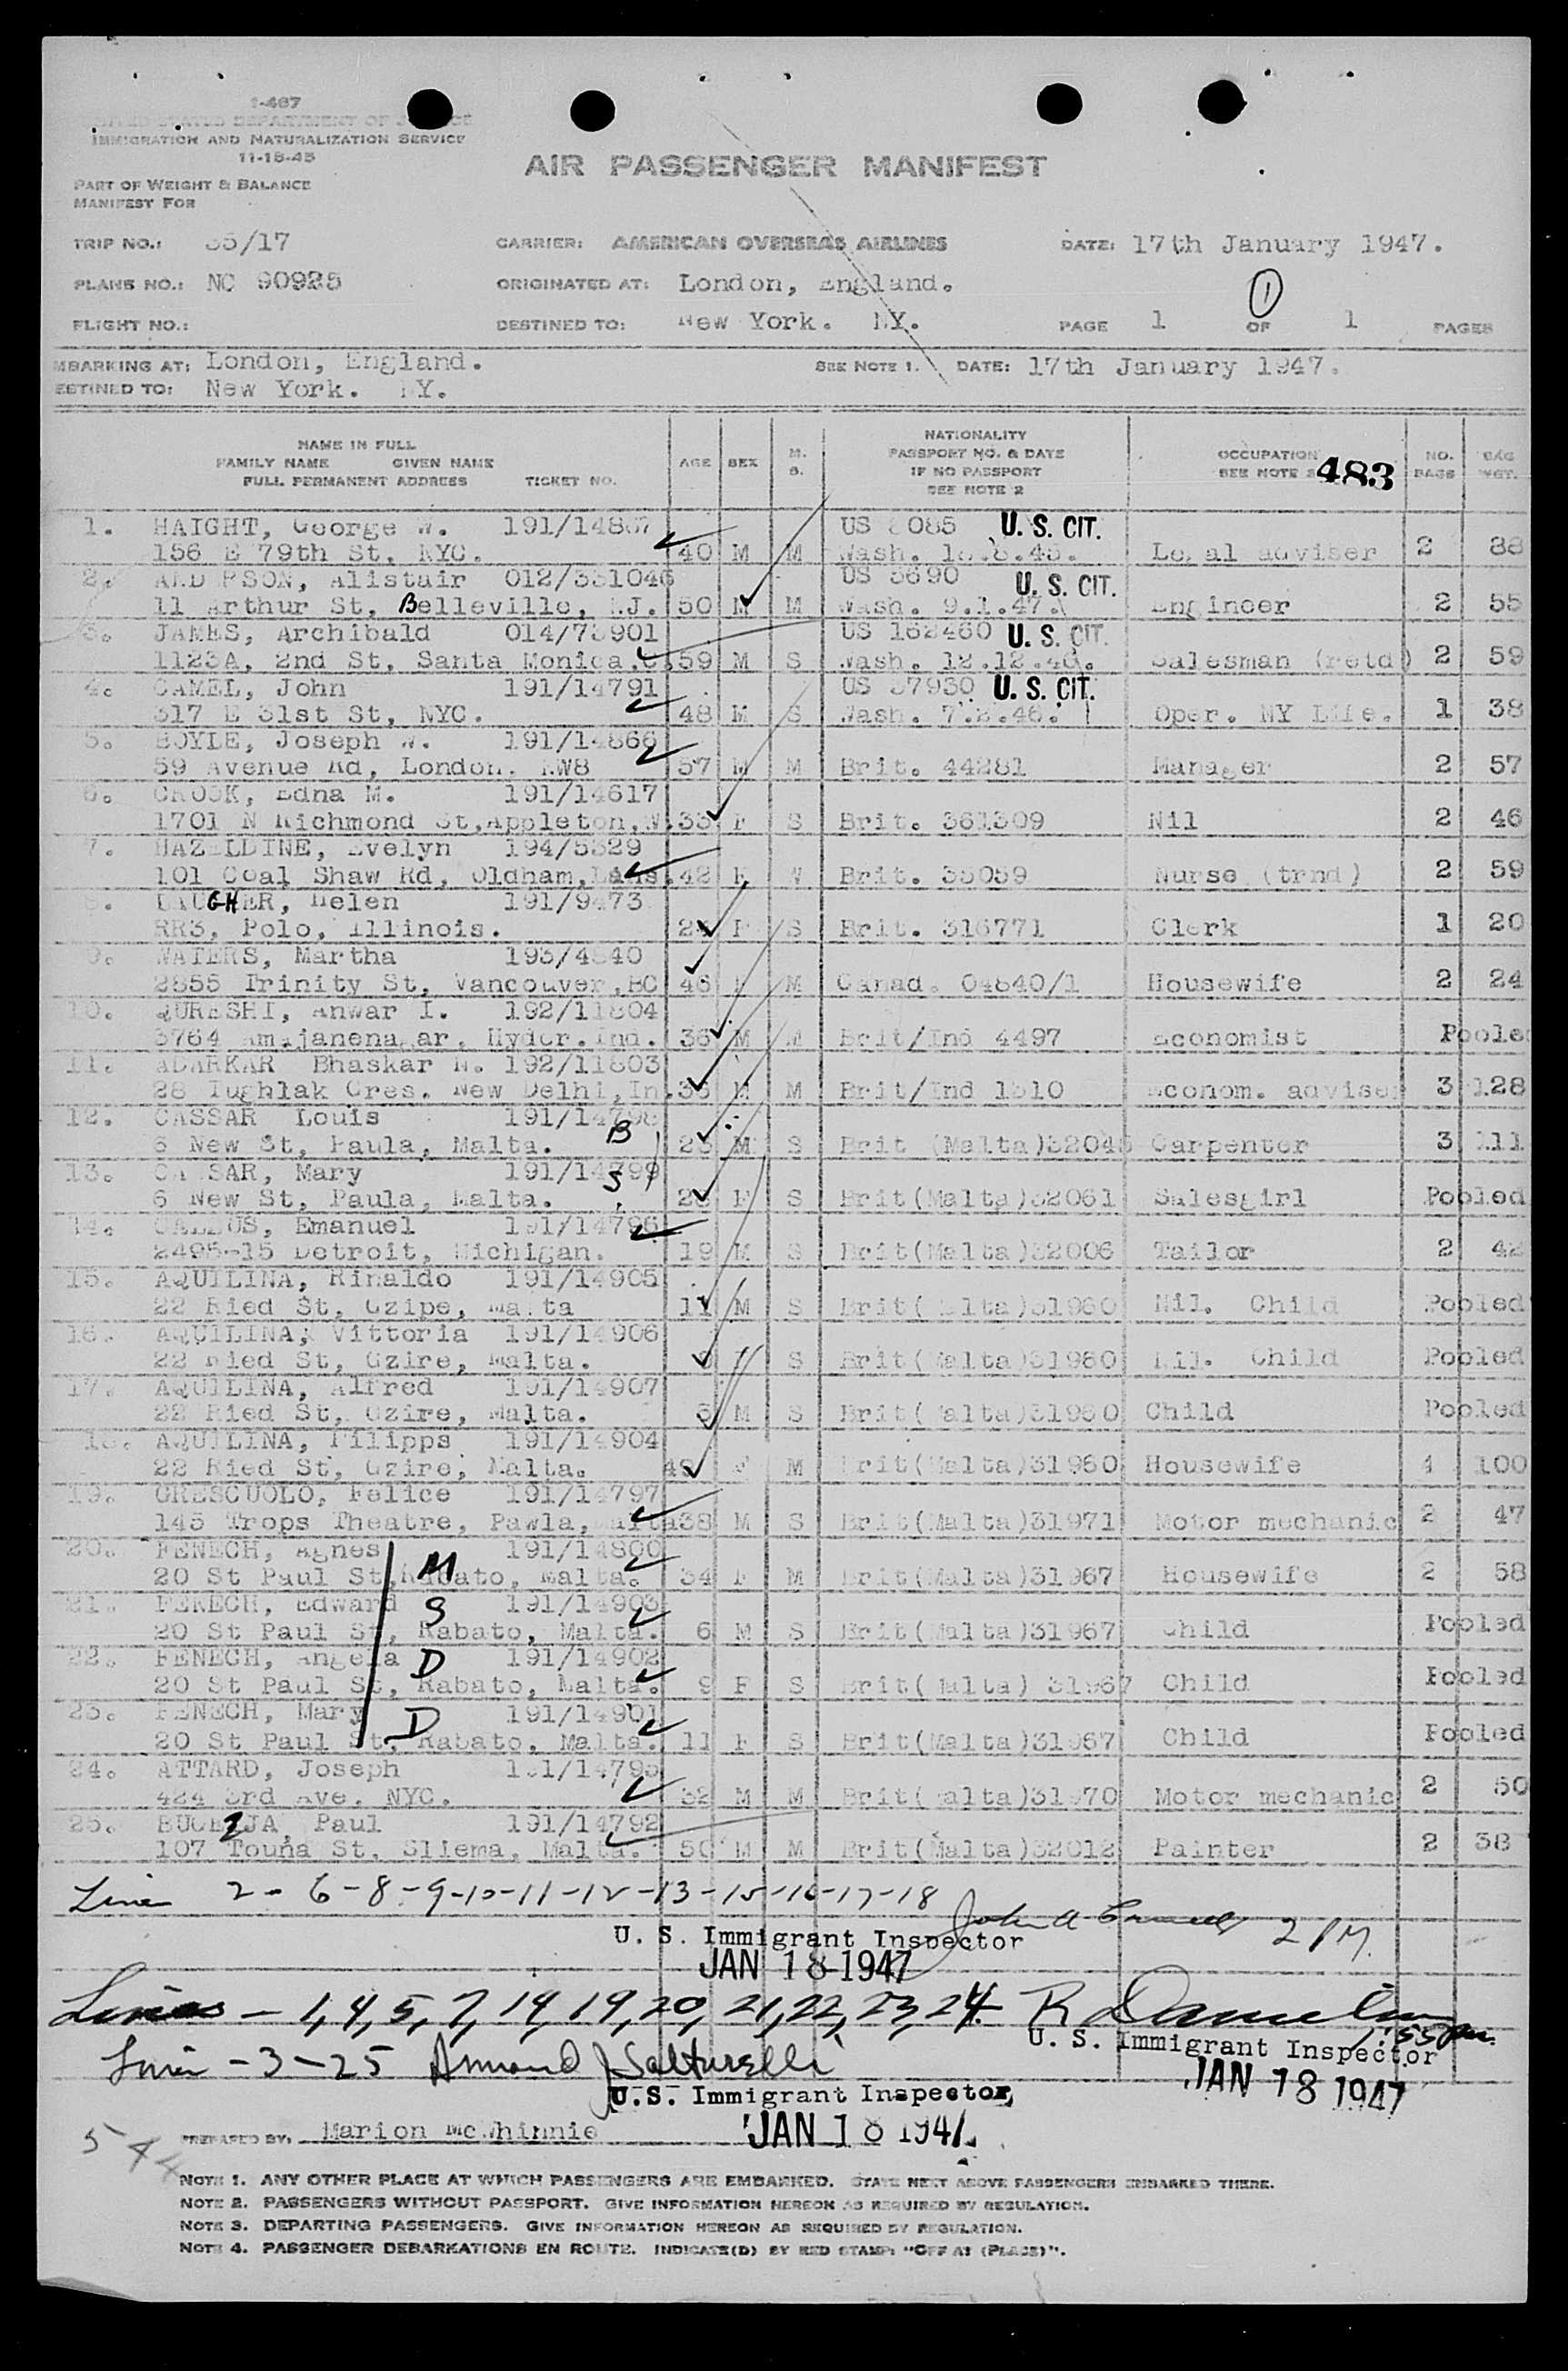 I-467
UNITED STATES DEPARTMENT OF JUSTICE
IMMIGRATION AND NATURALIZATION SERVICE
11-15-45
AIR PASSENGER MANIFEST
PART OF WEIGHT & BALANCE
MANIFEST FOR
TRIP NO.: 35/17 CARRIER: AMERICAN OVERSEAS AIRLINES DATE: 17th January 1947.
PLANE NO.: NC 90925 ORIGINATED AT: London, England.
FLIGHT NO.: DESTINED TO: New York. NY. PAGE 1 OF 1 PAGES
1
MBARKING AT: London, England. SEE NOTE 1. DATE: 17th January 1947.
ESTINED TO: New York. NY.
NAME IN FULL
FAMILY NAME GIVEN NAME
FULL PERMANENT ADDRESS TICKET NO. AGE SEX M. S. NATIONALITY PASSPORT NO. & DATE IF NO PASSPORT SEE NOTE 2 OCCUPATION SEE NOTE 3 483 NO. BAGS BAG WGT.
1. HAIGHT, George W. 191/14867 US 8085 U. S. CIT.
156 E 79th St, NYC. 40 M M Wash. Legal adviser 2 88
2. Alistair 012/331046 US 3690 U. S. CIT.
11 Arthur St, Belleville, NJ. 50 M M Wash. 9.1.47. Engineer 2 55
3. JAMES, Archibald 014/73901 US 162460 U. S. CIT.
1123A, 2nd St, Santa Monica, C. 59 M S Wash. 12.12.46. Salesman (retd) 2 59
4. CAMEL, John 191/14791 US 37930 U. S. CIT.
317 E 31st St, NYC. 48 M S Wash. Oper. NY Life. 1 38
5. BOYLE, Joseph W. 191/14866
59 Avenue Rd, London. NW8 57 M M Brit. 44281 Manager 2 57
6. CROOK, Edna M. 191/14617
1701 N Richmond St, Appleton, W. 33 F S Brit. 361309 Nil 2 46
7. HAZELDINE, Evelyn 194/5329
101 Coal Shaw Rd, Oldham, Lancs. 42 F W Brit. 35059 Nurse (trnd) 2 59
8. Helen 191/9473
RR3, Polo, Illinois. 24 F S Brit. 316771 Clerk 1 20
9. WATERS, Martha 193/4840
2855 Trinity St, Vancouver, BC 46 F M Canad. 04840/1 Housewife 2 24
10. QURESHI, Anwar I. 192/11804
3764 Hyder. Ind. 36 M M Brit/Ind 4497 Economist Pooled
11. ADARKAR Bhaskar N. 192/11803
28 Tughlak Cres. New Delhi, In. 36 M M Brit/Ind 1310 Econom. adviser 3 128
12. CASSAR Louis 191/14798
6 New St, Paula, Malta. B M S Brit (Malta)32045 Carpenter 3 111
13. CASSAR, Mary 191/14799
6 New St, Paula, Malta. S F S Brit(Malta)32061 Salesgirl Pooled
14. Emanuel 191/14796
2495-15 Detroit, Michigan. 19 M S Brit(Malta)32006 Tailor 2 42
15. AQUILINA, Rinaldo 191/14905
22 Ried St, Gzipe, Malta 11 M S Brit(Malta)31960 Nil. Child Pooled
16. AQUILINA, Vittoria 191/14906
22 Ried St, Gzire, Malta. F S Brit(Malta)31960 Nil. Child Pooled
17. AQUILINA, Alfred 191/14907
22 Ried St, Gzire, Malta. 5 M S Brit(Malta)31960 Child Pooled
18. AQUILINA, Filipps 191/14904
22 Ried St, Gzire, Malta. F M Brit(Malta)31960 Housewife 4 100
19. GRESCUOLO, Felice 191/14797
145 Trops Theatre, Pawla, Malta 38 M S Brit(Malta)31971 Motor mechanic 2 47
20. FENECH, Agnes 191/14800
20 St Paul St, Rabato, Malta. M 34 F M Brit(Malta)31967 Housewife 2 58
21. FENECH, Edward S 191/14903
20 St Paul St, Rabato, Malta. 6 M S Brit(Malta)31967 Child Pooled
22. FENECH, Angela D 191/14902
20 St Paul St, Rabato, Malta. 9 F S Brit(Malta) 31967 Child Pooled
23. FENECH, Mary D 191/14901
20 St Paul St, Rabato, Malta. 11 F S Brit(Malta)31967 Child Pooled
24. ATTARD, Joseph 191/14795
424 3rd Ave. NYC. 52 M M Brit(Malta)31970 Motor mechanic 2 50
25. Paul 191/14792
107 Touna St, Sliema, Malta. 50 M M Brit(Malta)32012 Painter 2 38
Line 2-6-8-9-10-11-12-13-15-16-17-18
U. S. Immigrant Inspector 2 PM.
JAN 18 1947
Lines - 1, 4, 5, 7, 14, 19, 20, 21, 22, 23, 24.
1:55 pm.
U. S. Immigrant Inspector
Line - 3 - 25
JAN 18 1947
U.S. Immigrant Inspector
JAN 18 1947
PREPARED BY: Marion McWhinnie
544
NOTE 1. ANY OTHER PLACE AT WHICH PASSENGERS ARE EMBARKED. STATE NEXT ABOVE PASSENGERS EMBARKED THERE.
NOTE 2. PASSENGERS WITHOUT PASSPORT. GIVE INFORMATION HEREON AS REQUIRED BY REGULATION.
NOTE 3. DEPARTING PASSENGERS. GIVE INFORMATION HEREON AS REQUIRED BY REGULATION.
NOTE 4. PASSENGER DEBARKATIONS EN ROUTE. INDICATE(D) BY RED STAMP: "OFF AT (PLACE)".